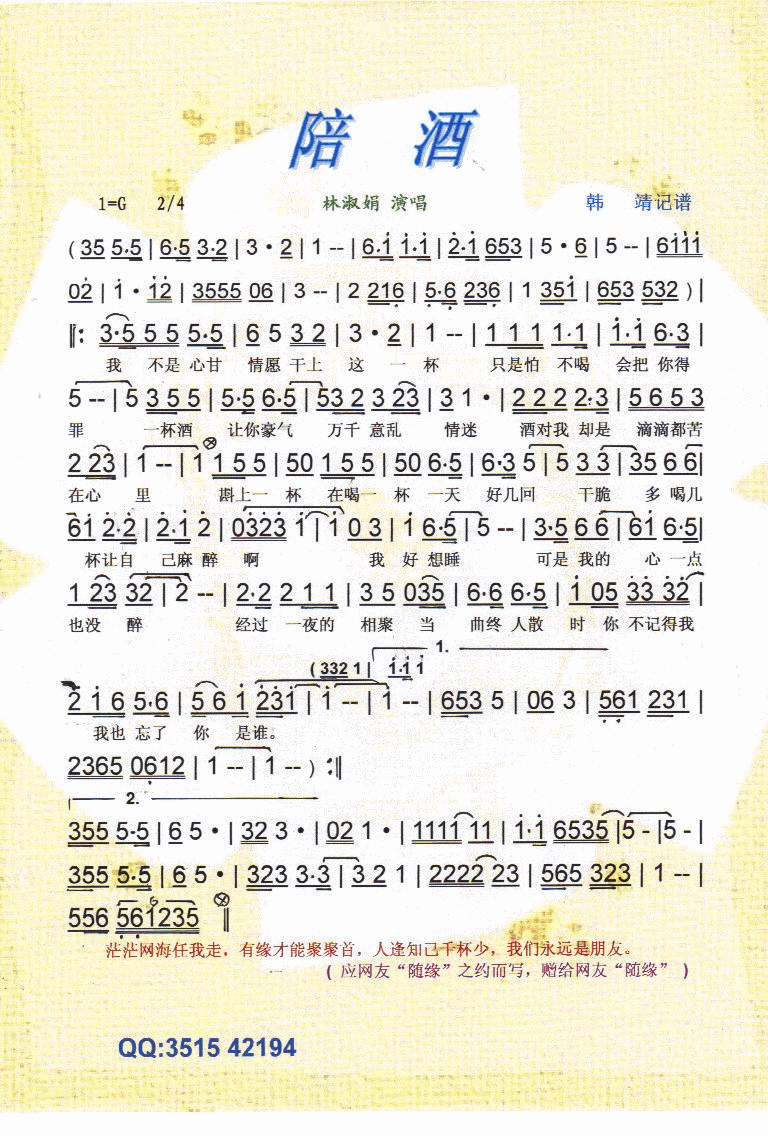 陪 酒
1=G 2/4 林淑娟 演唱 韩 靖记谱
( 35 5·5 | 6·5 3·2 | 3 · 2 | 1 -- | 6·1 1·1 | 2·1 653 | 5 · 6 | 5 -- | 6111
02 | 1 · 12 | 3555 06 | 3 -- | 2 216 | 5·6 236 | 1 351 | 653 532 ) |
‖: 3·5 5 5 5·5 | 6 5 3 2 | 3 · 2 | 1 -- | 1 1 1 1·1 | 1·1 6·3 |
我 不是 心甘 情愿 干上 这 一 杯 只是怕 不喝 会把 你得
5 -- | 5 3 5 5 | 5·5 6·5 | 53 2 3 23 | 3 1 · | 2 2 2 2·3 | 5 6 5 3
罪 一杯酒 让你豪气 万千 意乱 情迷 酒对我 却是 滴滴都苦
2 23 | 1 -- | 1 1 5 5 | 50 1 5 5 | 50 6·5 | 6·3 5 | 5 3 3 | 35 6 6 |
在心 里 斟上一 杯 在喝一 杯 一天 好几回 干脆 多 喝儿
61 2·2 | 2·1 2 | 0323 1 | 1 0 3 | 1 6·5 | 5 -- | 3·5 6 6 | 61 6·5 |
杯让自 己麻 醉 啊 我 好 想睡 可是 我的 心 一点
1 23 32 | 2 -- | 2·2 2 1 1 | 3 5 035 | 6·6 6·5 | 1 05 33 32 |
也没 醉 经过 一夜的 相聚 当 曲终 人散 时 你 不记得我
1.
( 332 1 | 1·1 1
2 1 6 5·6 | 5 6 1 231 | 1 -- | 1 -- | 653 5 | 06 3 | 561 231 |
我也 忘了 你 是谁。
2365 0612 | 1 -- | 1 -- ) :‖
2.
355 5·5 | 6 5 · | 32 3 · | 02 1 · | 1111 11 | 1·1 6535 | 5 - | 5 - |
355 5·5 | 6 5 · | 323 3·3 | 3 2 1 | 2222 23 | 565 323 | 1 -- |
556 561235 ‖
6
茫茫网海任我走，有缘才能聚聚首，人逢知己千杯少，我们永远是朋友。
( 应网友“随缘”之约而写，赠给网友“随缘” )
QQ:3515 42194